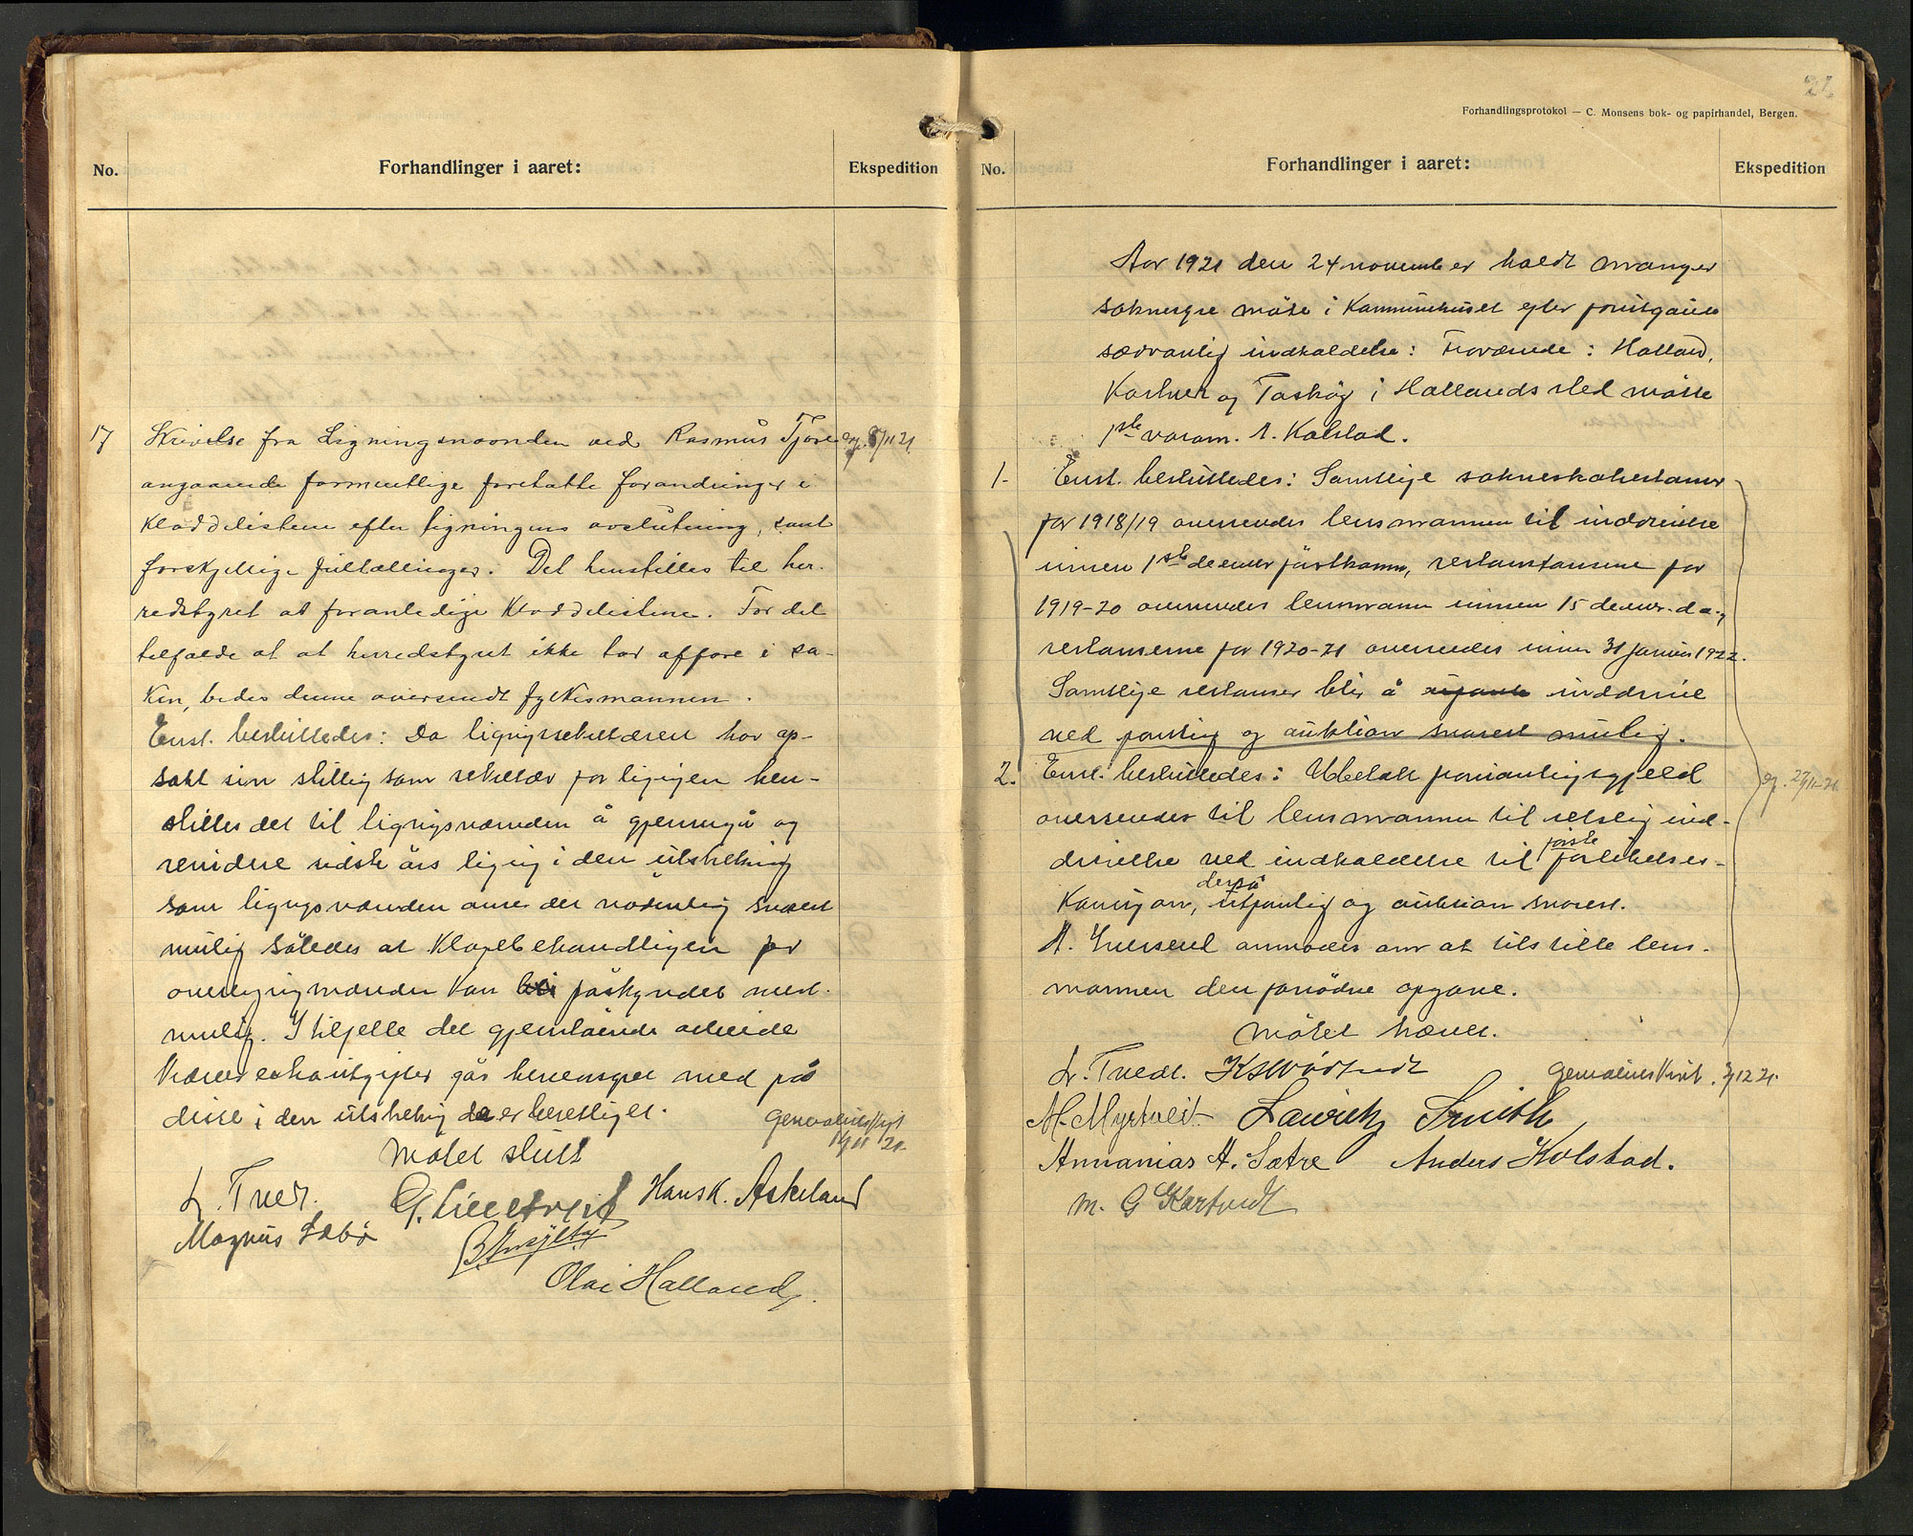 No.
Forhandlinger i aaret:
Ekspedition
17 Skrivelse fra Ligningsnevnden ved Rasmus Tjore
angaaende formentlige foretatte forandringer i
Kladdelistene efter ligningens avslutning, samt
forskjellige
Det henstilles til her-
redstyret at foranledige Kladdelistene. For det
tilfælde at at herredstyret ikke tar affære i sa-
ken, bedes denne oversendt fylkesmannen.
Enst. besluttedes: Da ligngssekretæren har op-
sakt sin stillig som sekretær for ligngen hen-
stilles det til ligngsnævnden å gjennemgå og
revidere sidste års ligng i den utstrekning
som ligngsnævnden anser det nødvendig snarest
mulig således at Klagebehandligen for
overligngsnævnden kan påskyndes mest
mulig. I tilfelle det gjenstående arbeide
kræver ekstrautgifter går herredsstyret med på
disse i den utstrekng de er berettiget.
Møtet slutt
L. Tvedt.
Hans K. Askeland
Magnus Sæbø
Olai Halland
21.
Forhandlingsprotokol — C. Monsens bok- og papirhandel, Bergen.
No.
Forhandlinger i aaret:
Ekspedition
Aar 1921 den 24 november holdt Manger
soknesyre møte i Kommunehuset efter forutgående
sædvanlig indkaldelse: Fraværende: Halland,
og i Hallands sted møtte
1ste varam. A. Kolstad.
1. Enst. besluttedes: Samtlige sokneskatrestanser
for 1918/19 oversendes lensmannen til inddrivelse
innen 1ste december førstkomm, restanserne for
1919-20 oversendes lensmann innen 15 decbr. d.a.,
restanserne for 1920-21 oversendes innen 31 januar 1922.
Samtlige restanser blir å inddrive
ved pantng og auktion snarest mulig.
2. Enst. besluttedes: Ubetalt forsiantligsgjeld
oversendes til lensmannen til retslig ind-
drivelse ved indkaldelse til første forlikelses-
Komisjon, derpå utpantng og auktion snarest.
A. anmodes om at tilstille lens-
mannen den fornødne opgave.
Møtet hævet.
L. Tvedt.
M. Myrtveit
Lauritz Smith
Annanias A. Sætre
Anders Kolstad.